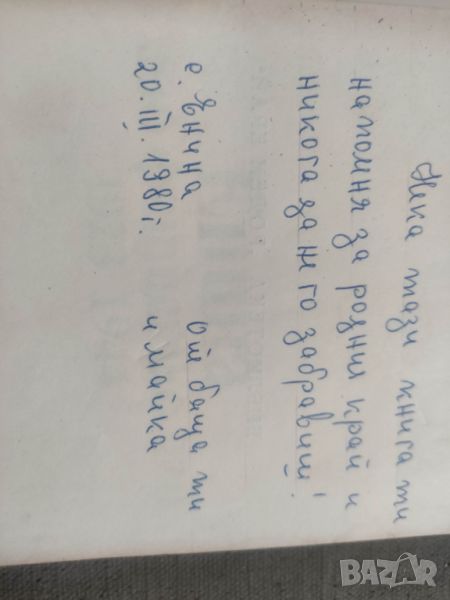 Нека тази книга ти
напомня за родния край и
никога да не го забравиш!
с. Енина
20. III. 1980 г.
От баща ти
и майка
BAZAR